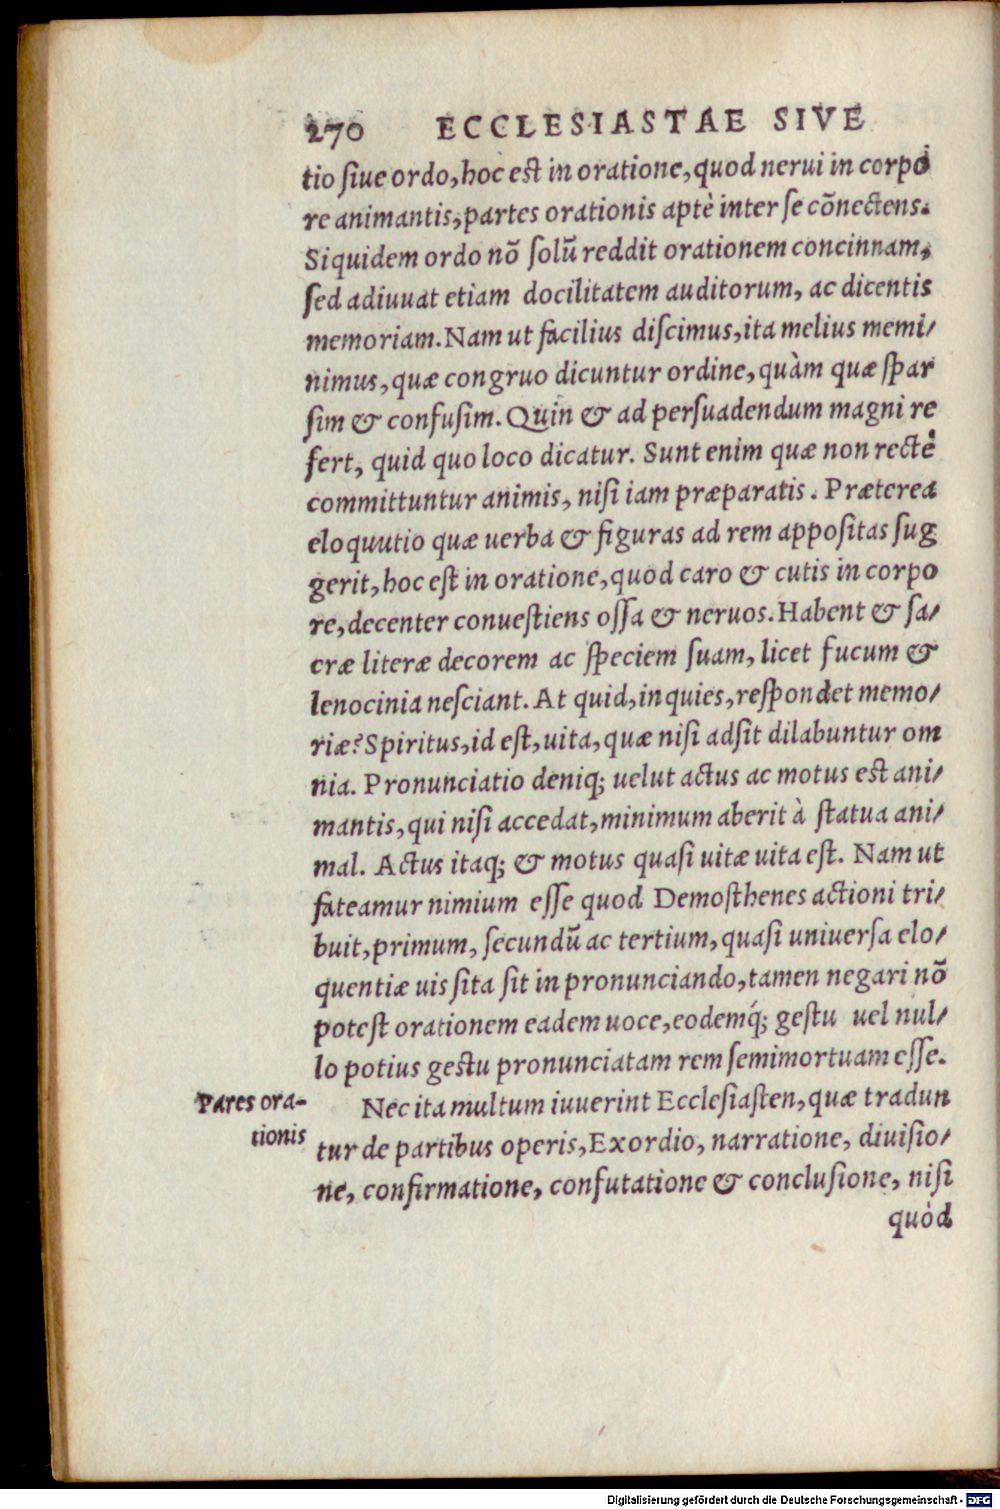 270 ECCLESIASTAE SIVE
tio siue ordo, hoc est in oratione, quod nerui in corpo
re animantis, partes orationis aptè inter se cõnectens.
Siquidem ordo nõ solũ reddit orationem concinnam,
sed adiuuat etiam docilitatem auditorum, ac dicentis
memoriam. Nam ut facilius discimus, ita melius memi/
nimus, quæ congruo dicuntur ordine, quàm quæ spar
sim & confusim. Quin & ad persuadendum magni re
fert, quid quo loco dicatur. Sunt enim quæ non rectè
committuntur animis, nisi iam præparatis. Præterea
eloquutio quæ uerba & figuras ad rem appositas sug
gerit, hoc est in oratione, quod caro & cutis in corpo
re, decenter conuestiens ossa & neruos. Habent & sa/
cræ literæ decorem ac speciem suam, licet fucum &
lenocinia nesciant. At quid, inquies, respondet memo/
riæ? Spiritus, id est, uita, quæ nisi adsit dilabuntur om
nia. Pronunciatio deniq; uelut actus ac motus est ani/
mantis, qui nisi accedat, minimum aberit à statua ani/
mal. Actus itaq; & motus quasi uitæ uita est. Nam ut
fateamur nimium esse quod Demosthenes actioni tri/
buit, primum, secundũ ac tertium, quasi uniuersa elo/
quentiæ uis sita sit in pronunciando, tamen negari nõ
potest orationem eadem uoce, eodemq́; gestu uel nul/
lo potius gestu pronunciatam rem semimortuam esse.
Pares ora-
tionis
Nec ita multum iuuerint Ecclesiasten, quæ tradun
tur de partibus operis, Exordio, narratione, diuisio/
ne, confirmatione, confutatione & conclusione, nisi
quòd
Digitalisierung gefördert durch die Deutsche Forschungsgemeinschaft - DFG